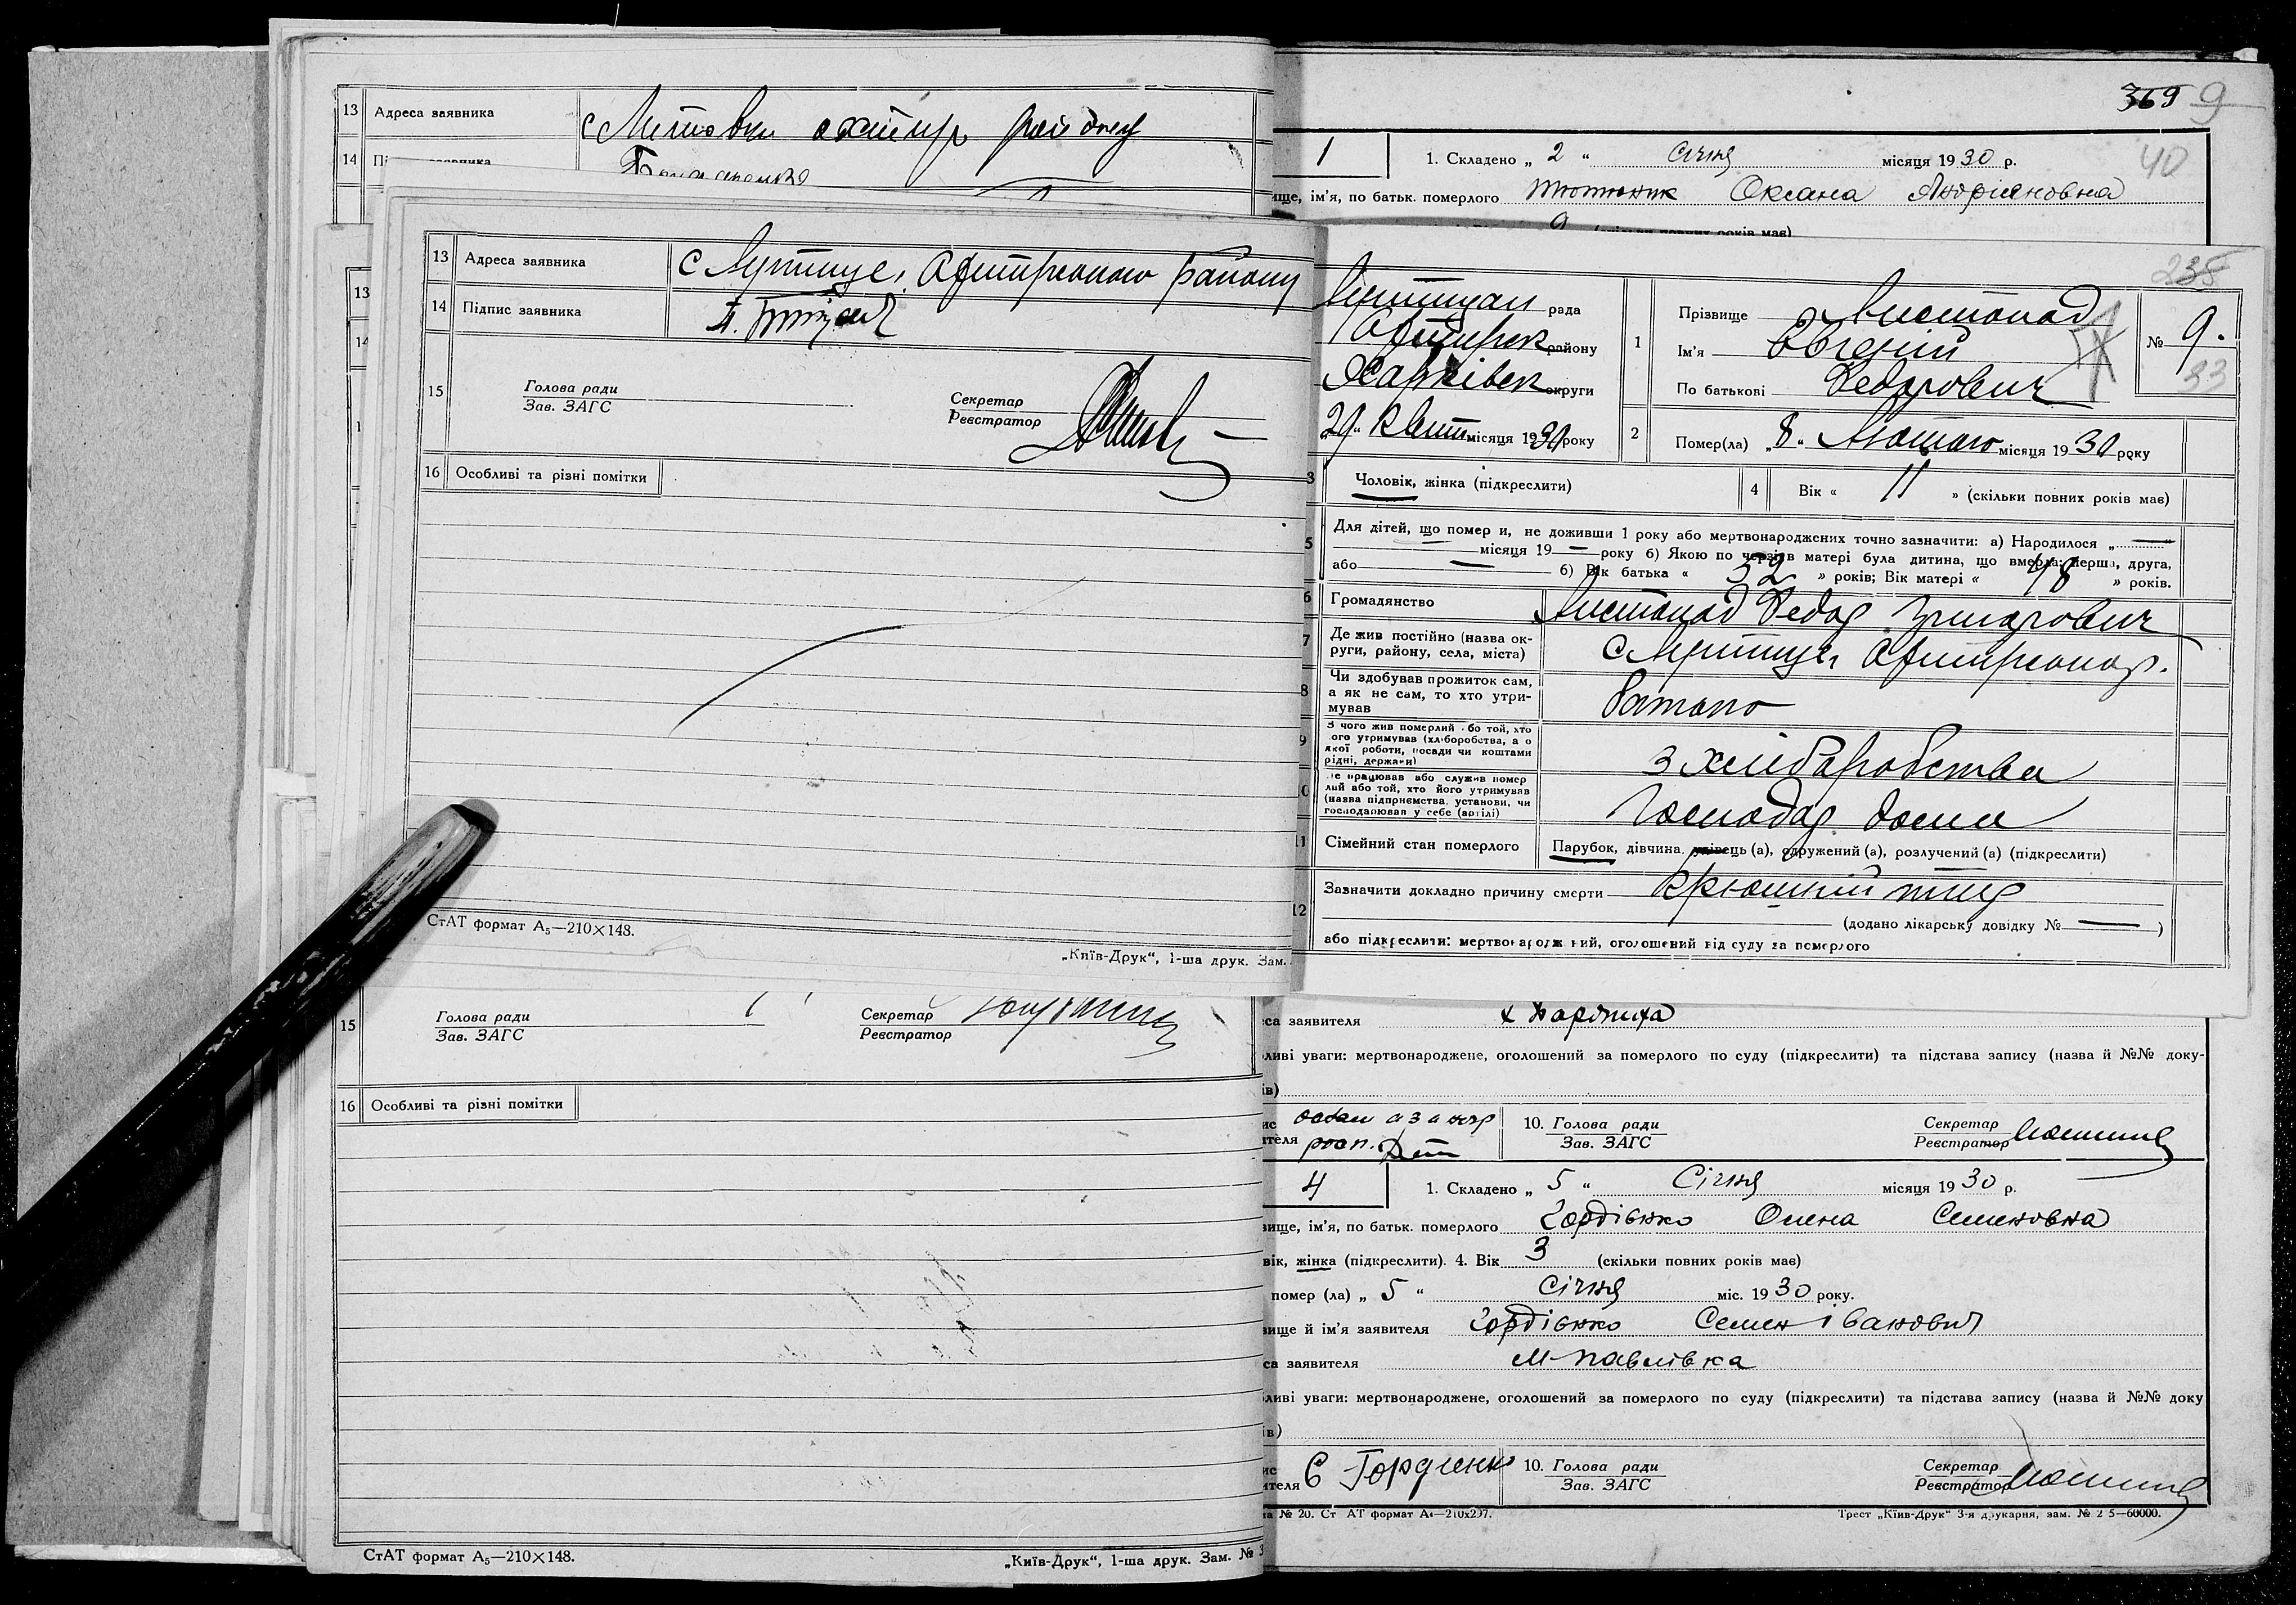 13 Адреса заявника
14
13 Адреса заявника с Лутище, Охтирського району
14 Підпис заявника
15 Голова ради
Зав. ЗАГС
Секретар
Реєстратор
16 Особливі та різні помітки
СтАТ формат А₅—210×148.
„Київ-Друк“, 1-ша друк. Зам.
15 Голова ради
Зав. ЗАГС
Секретар
Реєстратор
16 Особливі та різні помітки
СтАТ формат А₅—210×148.
„Київ-Друк“, 1-ша друк. Зам. №
369 9
40
1
1. Складено „ 2 “ Січня місяця 1930 р.
ім’я, по батьк. померлого Тютюник Оксана Андріяновна
235
рада
району
округи
29 Квіт місяця 1930 року
1 Прізвище Листопад
Ім’я Євгеній
По батькові Федорович
№ 9.
33
2 Помер(ла) „8“ Лютого місяця 1930 року
3 Чоловік, жінка (підкреслити)
4 Вік « 11 » (скільки повних років має)
5 Для дітей, що померли, не доживши 1 року або мертвонароджених точно зазначити: а) Народилося „—“
— місяця 19 — року б) Якою по черзі в матері була дитина, що вмерла: перша, друга,
або — б) Вік батька « 52 » років; Вік матері « 48 » років.
6 Громадянство Листопад Федор
7 Де жив постійно (назва ок-
руги, району, села, міста) с Лутище,
8 Чи здобував прожиток сам,
а як не сам, то хто утри-
мував батько
9 З чого жив померлий або той, хто
його утримував (хліборобства, а о
якої роботи, посади чи коштами
рідні, держави) з хліборобства
10 Де працював або служив помер
лий або той, хто його утримував
(назва підприємства, установи, чи
господарював у себе (артілі) Господар дома
11 Сімейний стан померлого Парубок, дівчина, удівець (а), одружений (а), розлучений (а) (підкреслити)
12 Зазначити докладно причину смерти
(додано лікарську довідку № — )
або підкреслити: мертвонароджений, оголошений від суду за померлого
заявителя
уваги: мертвонароджене, оголошений за померлого по суду (підкреслити) та підстава запису (назва й №№ доку-
10. Голова ради
Зав. ЗАГС
Секретар
Реєстратор
4
1. Складено „ 5 “ Січня місяця 1930 р.
ім’я, по батьк. померлого Гордієнко Олена Семеновна
жінка (підкреслити). 4. Вік 3 (скільки повних років має)
помер (ла) „ 5 “ Січня міс. 1930 року.
й ім’я заявителя Гордієнко Семен Іванович
заявителя М-Павлівка
уваги: мертвонароджене, оголошений за померлого по суду (підкреслити) та підстава запису (назва й №№ доку
С Гордієнко
10. Голова ради
Зав. ЗАГС
Секретар
Реєстратор
№ 20. Ст АТ формат А₄—210х297.
Трест „Київ-Друк“ 3-я друкарня, зам. № 2 5—60000.